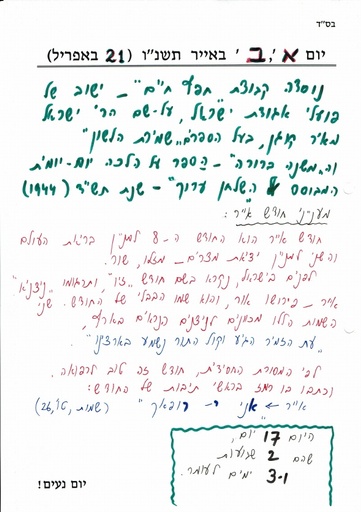 בס״ד
יום א', ב' באייר תשנ״ו (21 באפריל)
נוסדה קבוצת חפץ חיים - ישוב של
פועלי אגודת ישראל, על-שם הר' ישראל
מאיר קגן, בעל הספרים "שמירת הלשון"
וה"משנה ברורה" - הספר על הלכה יום-יומית
המבוסס על ה"שלחן ערוך" - שנת תש״ד (1944)
מענייני חודש אייר:
חודש אייר הוא החודש ה-8 למנין בריאת העולם
והשני למנין יציאת מצרים - מזלו, שור.
לפנים בישראל, נקרא בשם חודש "זיו", ותרגומו "ניצניא".
אייר - פירושו אור, והוא שמו הבבלי של החודש. שני
השמות הללו מכוונים לניצנים הנראים בארץ,
"עת הזמיר הגיע וקול התור נשמע בארצינו".
לפי המסורת החסידית, חודש זה טוב לרפואה.
וכתבו בו רמז בראשי תיבות של החודש:
אייר ← "אני י-י רופאך" (שמות, ט״ו, 26)
היום 17 יום,
שהם 2 שבועות
ו-3 ימים לעומר.
יום נעים!